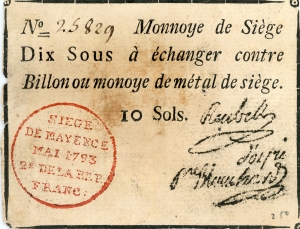 No. 25829 Monnoye de Siège
Dix Sous à échanger contre
Billon ou monoye de métal de siège.
10 Sols. Reubell
SIEGE
DE MAYENCE
MAI 1793
2e DE LA REP.
FRANC.